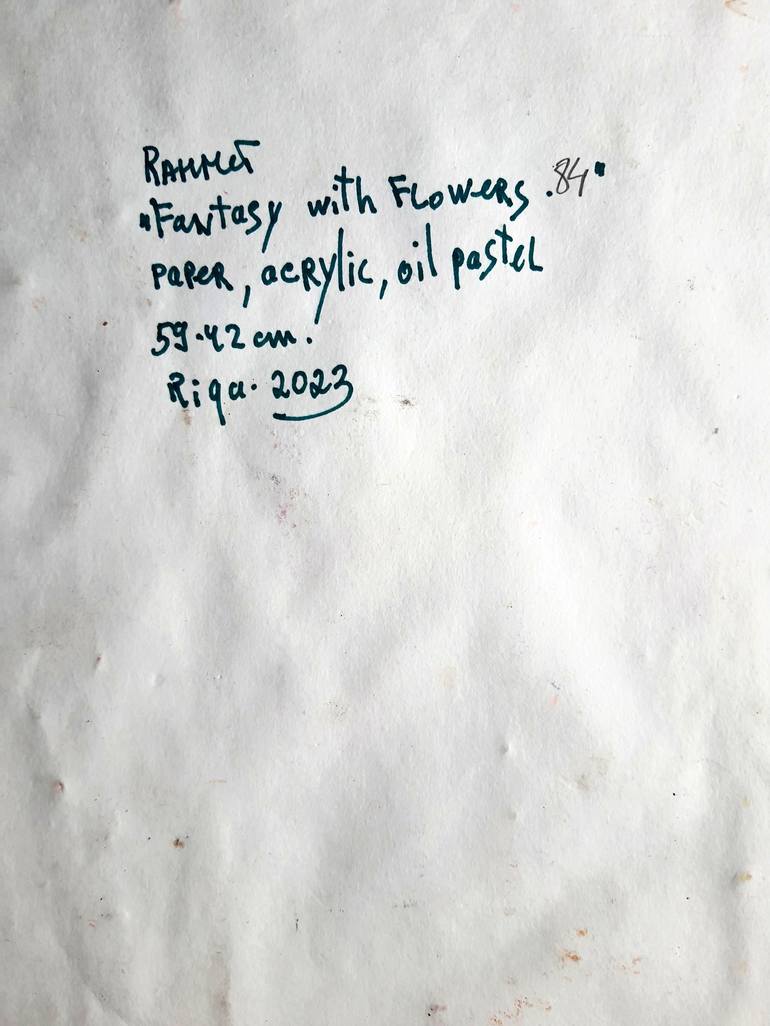 Rahmet
"Fantasy with Flowers .84"
paper, acrylic, oil pastel
59.42 cm.
Riga. 2023